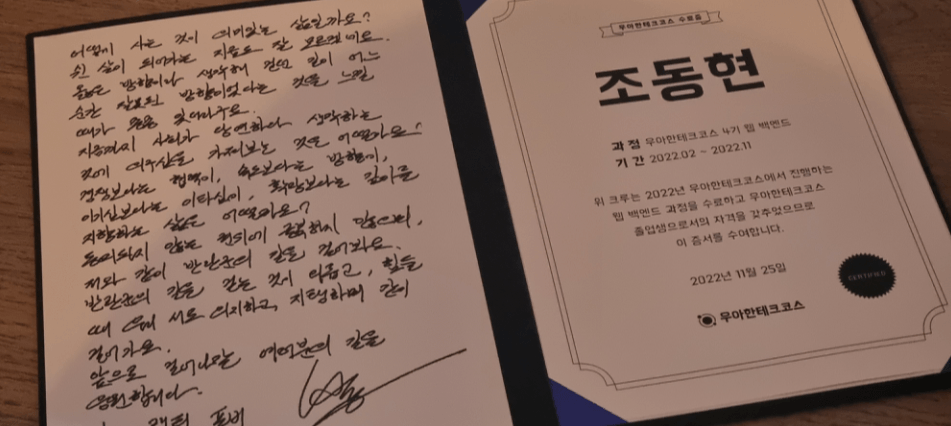 어떻게 사는 것이 의미있는 삶일까요?
쉰 살이 되어가는 지금도 잘 모르겠네요.
옳은 방향이라 생각해 걷던 길이 어느
순간 잘못된 방향이었다는 것을 느낄
때가 종종 있더라구요.
지금까지 사회가 당연하다 생각하는
것에 의구심을 가져보는 것은 어떨까요?
경쟁보다는 협력이, 속도보다는 방향이,
이기심보다는 이타심이, 확장보다는 깊이를
지향하는 삶은 어떨까요?
동의되지 않는 권위에 굴복하지 않으며,
저와 같이 반란군의 길을 걸어봐요.
반란군의 길을 걷는 것이 외롭고, 힘들
때 우리 서로 의지하고, 지탱하며 같이
걸어가요.
앞으로 걸어나갈 여러분의 길을
응원합니다.
포비
우아한테크코스 수료증
조동현
과 정 우아한테크코스 4기 웹 백엔드
기 간 2022.02 ~ 2022.11
위 크루는 2022년 우아한테크코스에서 진행하는
웹 백엔드 과정을 수료하고 우아한테크코스
졸업생으로서의 자격을 갖추었으므로
이 증서를 수여합니다.
2022년 11월 25일
CERTIFIED
우아한테크코스